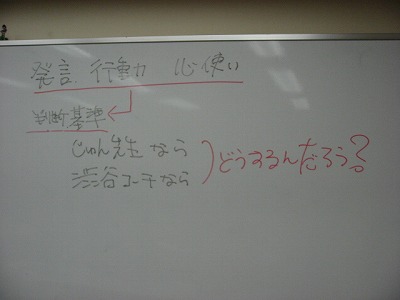 発言、行動 心使い
判断基準
じゅん先生なら
渋谷コーチなら
どうするんだろう?